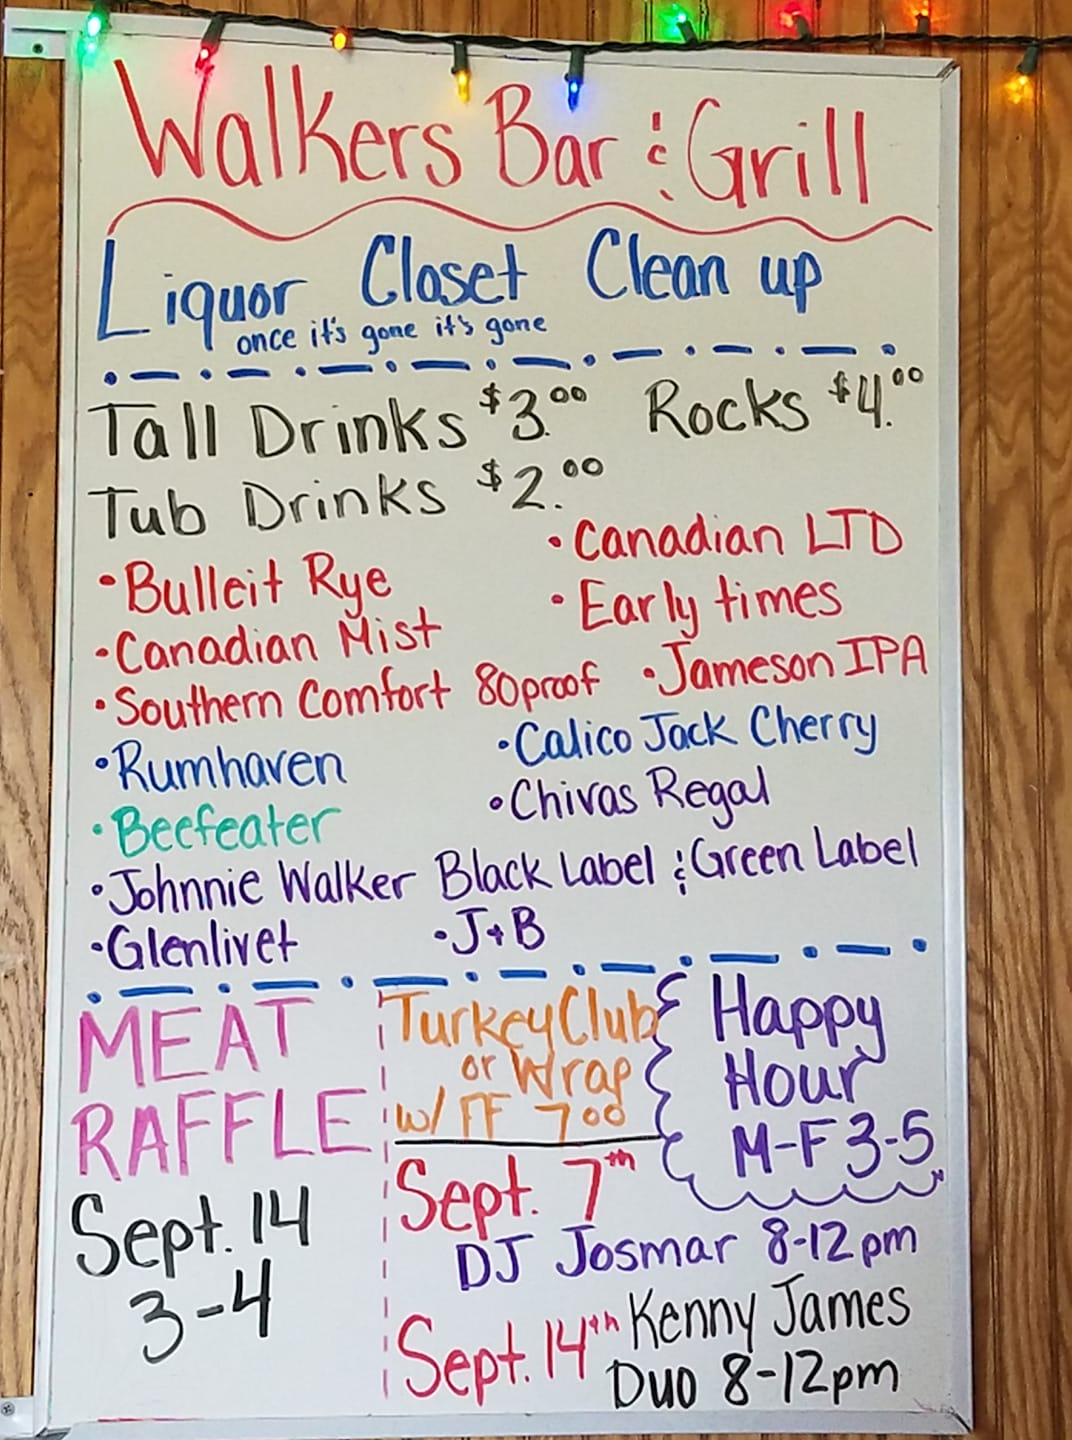 Walkers Bar & Grill
Liquor Closet Clean up
once it's gone it's gone
Tall Drinks $3.00 Rocks $4.00
Tub Drinks $2.00
• Canadian LTD
• Bulleit Rye
• Early times
• Canadian Mist
• Southern Comfort 80proof • Jameson IPA
• Rumhaven • Calico Jack Cherry
• Beefeater • Chivas Regal
• Johnnie Walker Black Label & Green Label
• Glenlivet • J+B
MEAT
RAFFLE
Sept. 14
3-4
Turkey Club
or Wrap
w/ FF 7.00
Happy
Hour
M-F 3-5
Sept. 7th
DJ Josmar 8-12pm
Sept. 14th Kenny James
Duo 8-12pm